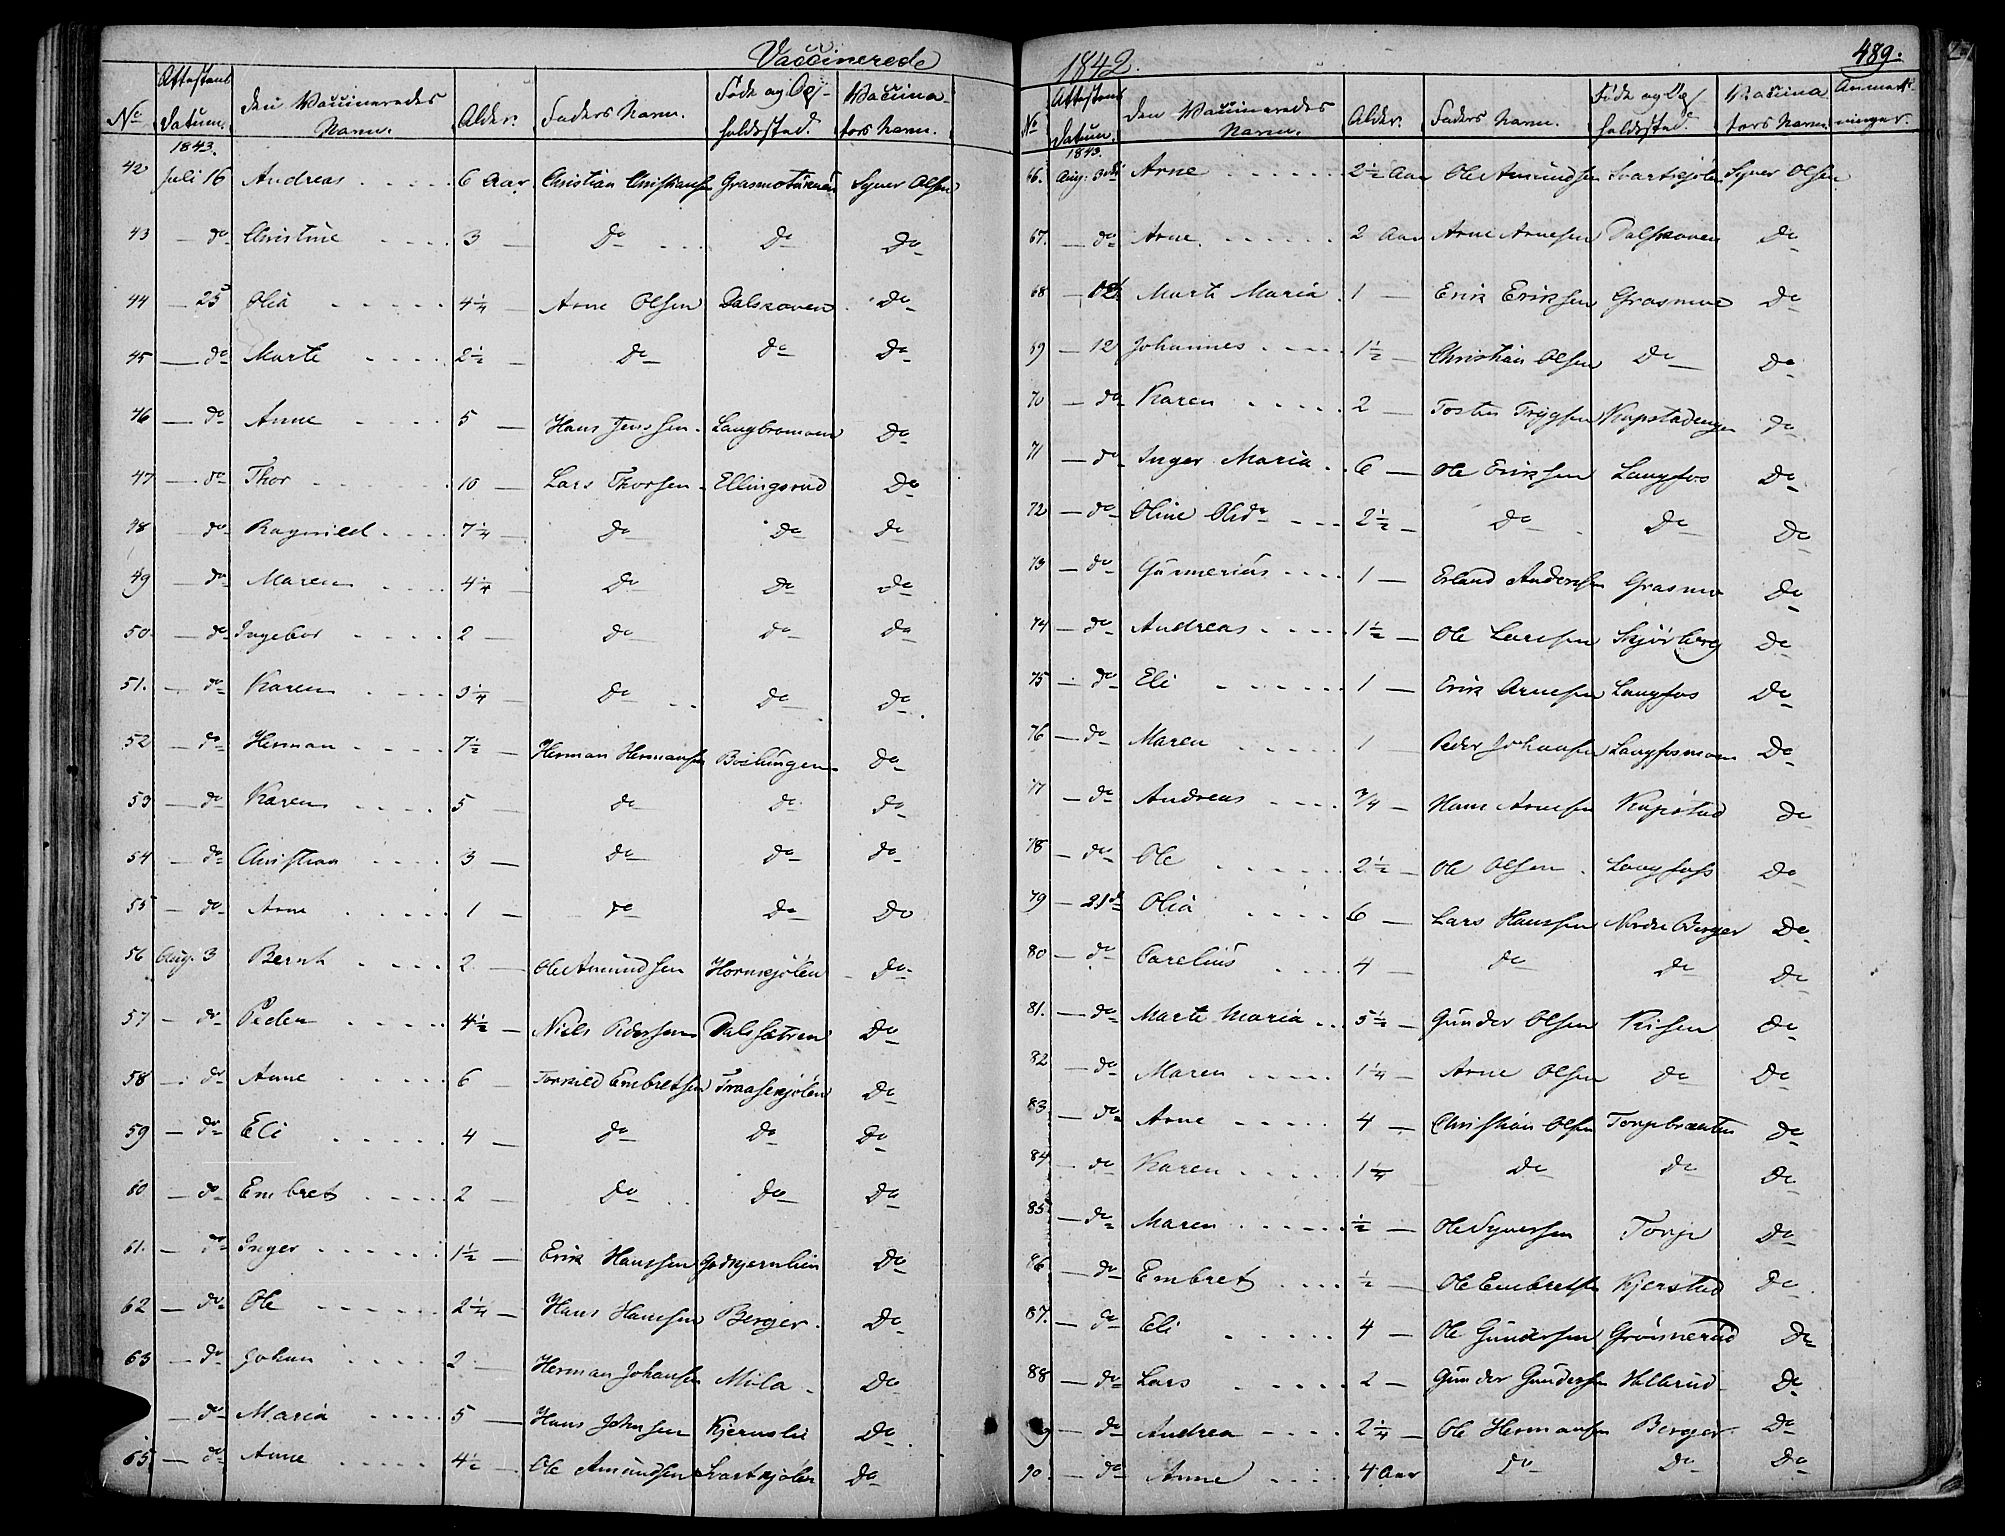 Vaccinerede
No | Attestens Datum. | den Vaccineredes Navn. | Alder. | Faders Navn. | Føde og Op-holdssted. | Vaccina-tors Navn.
1843.
42 Juli 16 Andreas 6 Aar Christian Christiansen Signer Olsen
43 — do Christine 3 — Do Do Do
44 — 25 Olia 4 1/4 Arne Olsen Dalskoven Do
45 — do Marte 2 1/2 — Do Do Do
46 — do Anne 5 — Hans Jenssen Langbromoen Do
47 — do Thor 10 — Lars Thorsen Ellingsrud Do
48 — do Ragnild 7 1/4 — Do Do Do
49 — do Maren 4 1/4 — Do Do Do
50. — do Ingebor 2 — Do Do Do
51. — do Karen 3 1/4 — Do Do Do
52 — do Herman 7 1/2 — Herman Hermansen Do
53 — do Karen 5 — do do Do
54 — do Christian 3 — do do do
55 — do Arne 1 — do Do Do
56 Aug. 3 Bernt 2 — Ole Amundsen Hornkjølen Do
57 — do Peder 4 1/2 — Niels Pedersen Dalsætren Do
58 — do Anne 6 — Torkild Embretsen Fraasekjølen Do
59 — do Eli 4 — Do Do Do
60 — do Embret 2 — Do Do Do
61. — do Inger 1 1/2 — Erik Hanssen Do
62 — do Ole 2 1/4 — Hans Hansen Berger Do
63 — do Johan 2 — Herman Johansen Mila Do
— do Maria 5 — Hans Johnsen Kjernslie Do
65 — do Anne 4 1/2 — Ole Amundsen Svartkjølen Do
1842.
489.
No | Attestens Datum. | den Vaccineredes Navn. | Alder. | Faders Navn. | Føde og Op-holdssted. | Vaccina-tors Navn. | Anmærk-ninger.
1843.
66. Aug. 3die Arne 2 1/2 Aar Ole Amundsen Svartkjølen Syver Olsen
67. — do Arne 2 Aar Arne Arnesen Dalskoven Do
68 — 12 Marte Maria 1 — Erik Eriksen Grasmoe Do
69 — 12 Johannes 1 1/2 — Christian Olsen Do Do
70 — do Karen 2 — Tosten Trygsen Kopstadengen do
71 — do Inger Maria 6 — Ole Eriksen Langfos Do
72 — do Oline Olsdr 2 1/2 — Do Do Do
73 — do Gunnerius 1 — Erland Andersen Grasmo Do
74 — do Andreas 1 1/2 — Ole Larssen Skjørberg Do
75 — do Eli 1 — Erik Arnesen Langfos Do
76 — do Maren 1 Peder Johansen Langfosmoen Do
77 — do Andreas 3/4 — Hans Arnesen Kopstad do
78 — do Ole 2 1/2 — Ole Olsen Langfoss Do
79 — 21de Olia 6 — Lars Hanssen Nordre Berger Do
80 — do Carelius 4 — do Do Do
81. — do Marte Maria 5 1/2 — Gunder Olsen Risen Do
82 — do Maren 1 1/4 — Arne Olsen Do Do
83. — do Arne 4 — Christian Olsen Torpbraaten Do
84 — do Karen 1 1/4 Do do Do
85. — do Maren 1/2 — Ole Syversen Torp Do
86 — do Embret 1/2 — Ole Embretsen Kjerstad Do
87. — do Eli 4 — Ole Gundersen Grønnerud Do
88 — do Lars 2 — Gunder Gundersen Hallerud Do
— do Andrea 2 1/4 — Ole Hermansen Berger Do
90. — do Anne 4 Aar Do Do Do